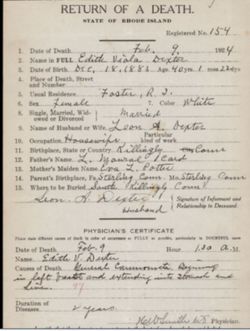 RETURN OF A DEATH.
STATE OF RHODE ISLAND
Registered No. 154
1. Date of Death, Feb. 9, 1924
2. Name in FULL Edith Viola Dexter
3. Date of Birth, Dec, 18, 1883 Age 40 yrs. 1 mos. 22 dys.
4. Place of Death, Street and Number
5. Usual Residence Foster, R. I.
6. Sex Female 7. Color White
8. Single, Married, Widowed or Divorced Married
9. Name of Husband or Wife, Leon A. Dexter
10. Occupation Housewife Particular kind of work
11. Birthplace, State or Country, Killingly Conn
12. Father's Name, L. Card
13. Mother's Maiden Name, Eva L. Potter
14. Parent's Birthplace, Fa. Sterling Conn. Mo. Sterling Conn
15. Where to be Buried South Killingly Conn
Leon A. Dexter Signature of Informant and
Husband Relationship to Deceased
PHYSICIAN'S CERTIFICATE
Date of Death Feb. 9 Hour 1:30 A. M.
Name Edith V. Dexter
Causes of Death General Carcinomata Beginning
in left breast and extending into Stomach and
Liver.
Duration of Diseases 2 years.
Smith M.D. Physician.